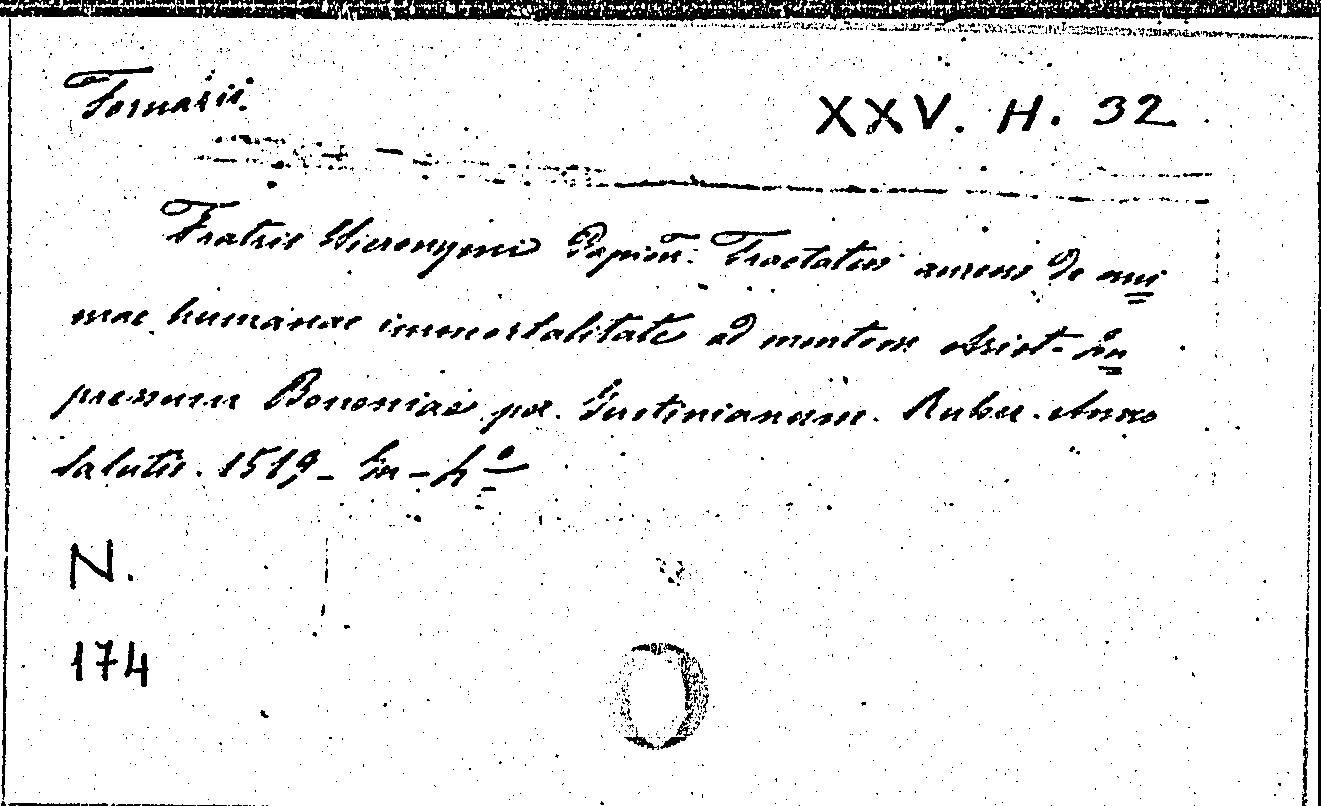 Fornarii.
XXV. H. 32
Fratris Hieronymi Papien. Tractatus aureus De ani=
mae humanae immortalitate ad mentem Arist- Im=
pressum Bononiae per. Justinianum. Ruber. Anno
Salutis. 1519,- In - 4º
N.
174